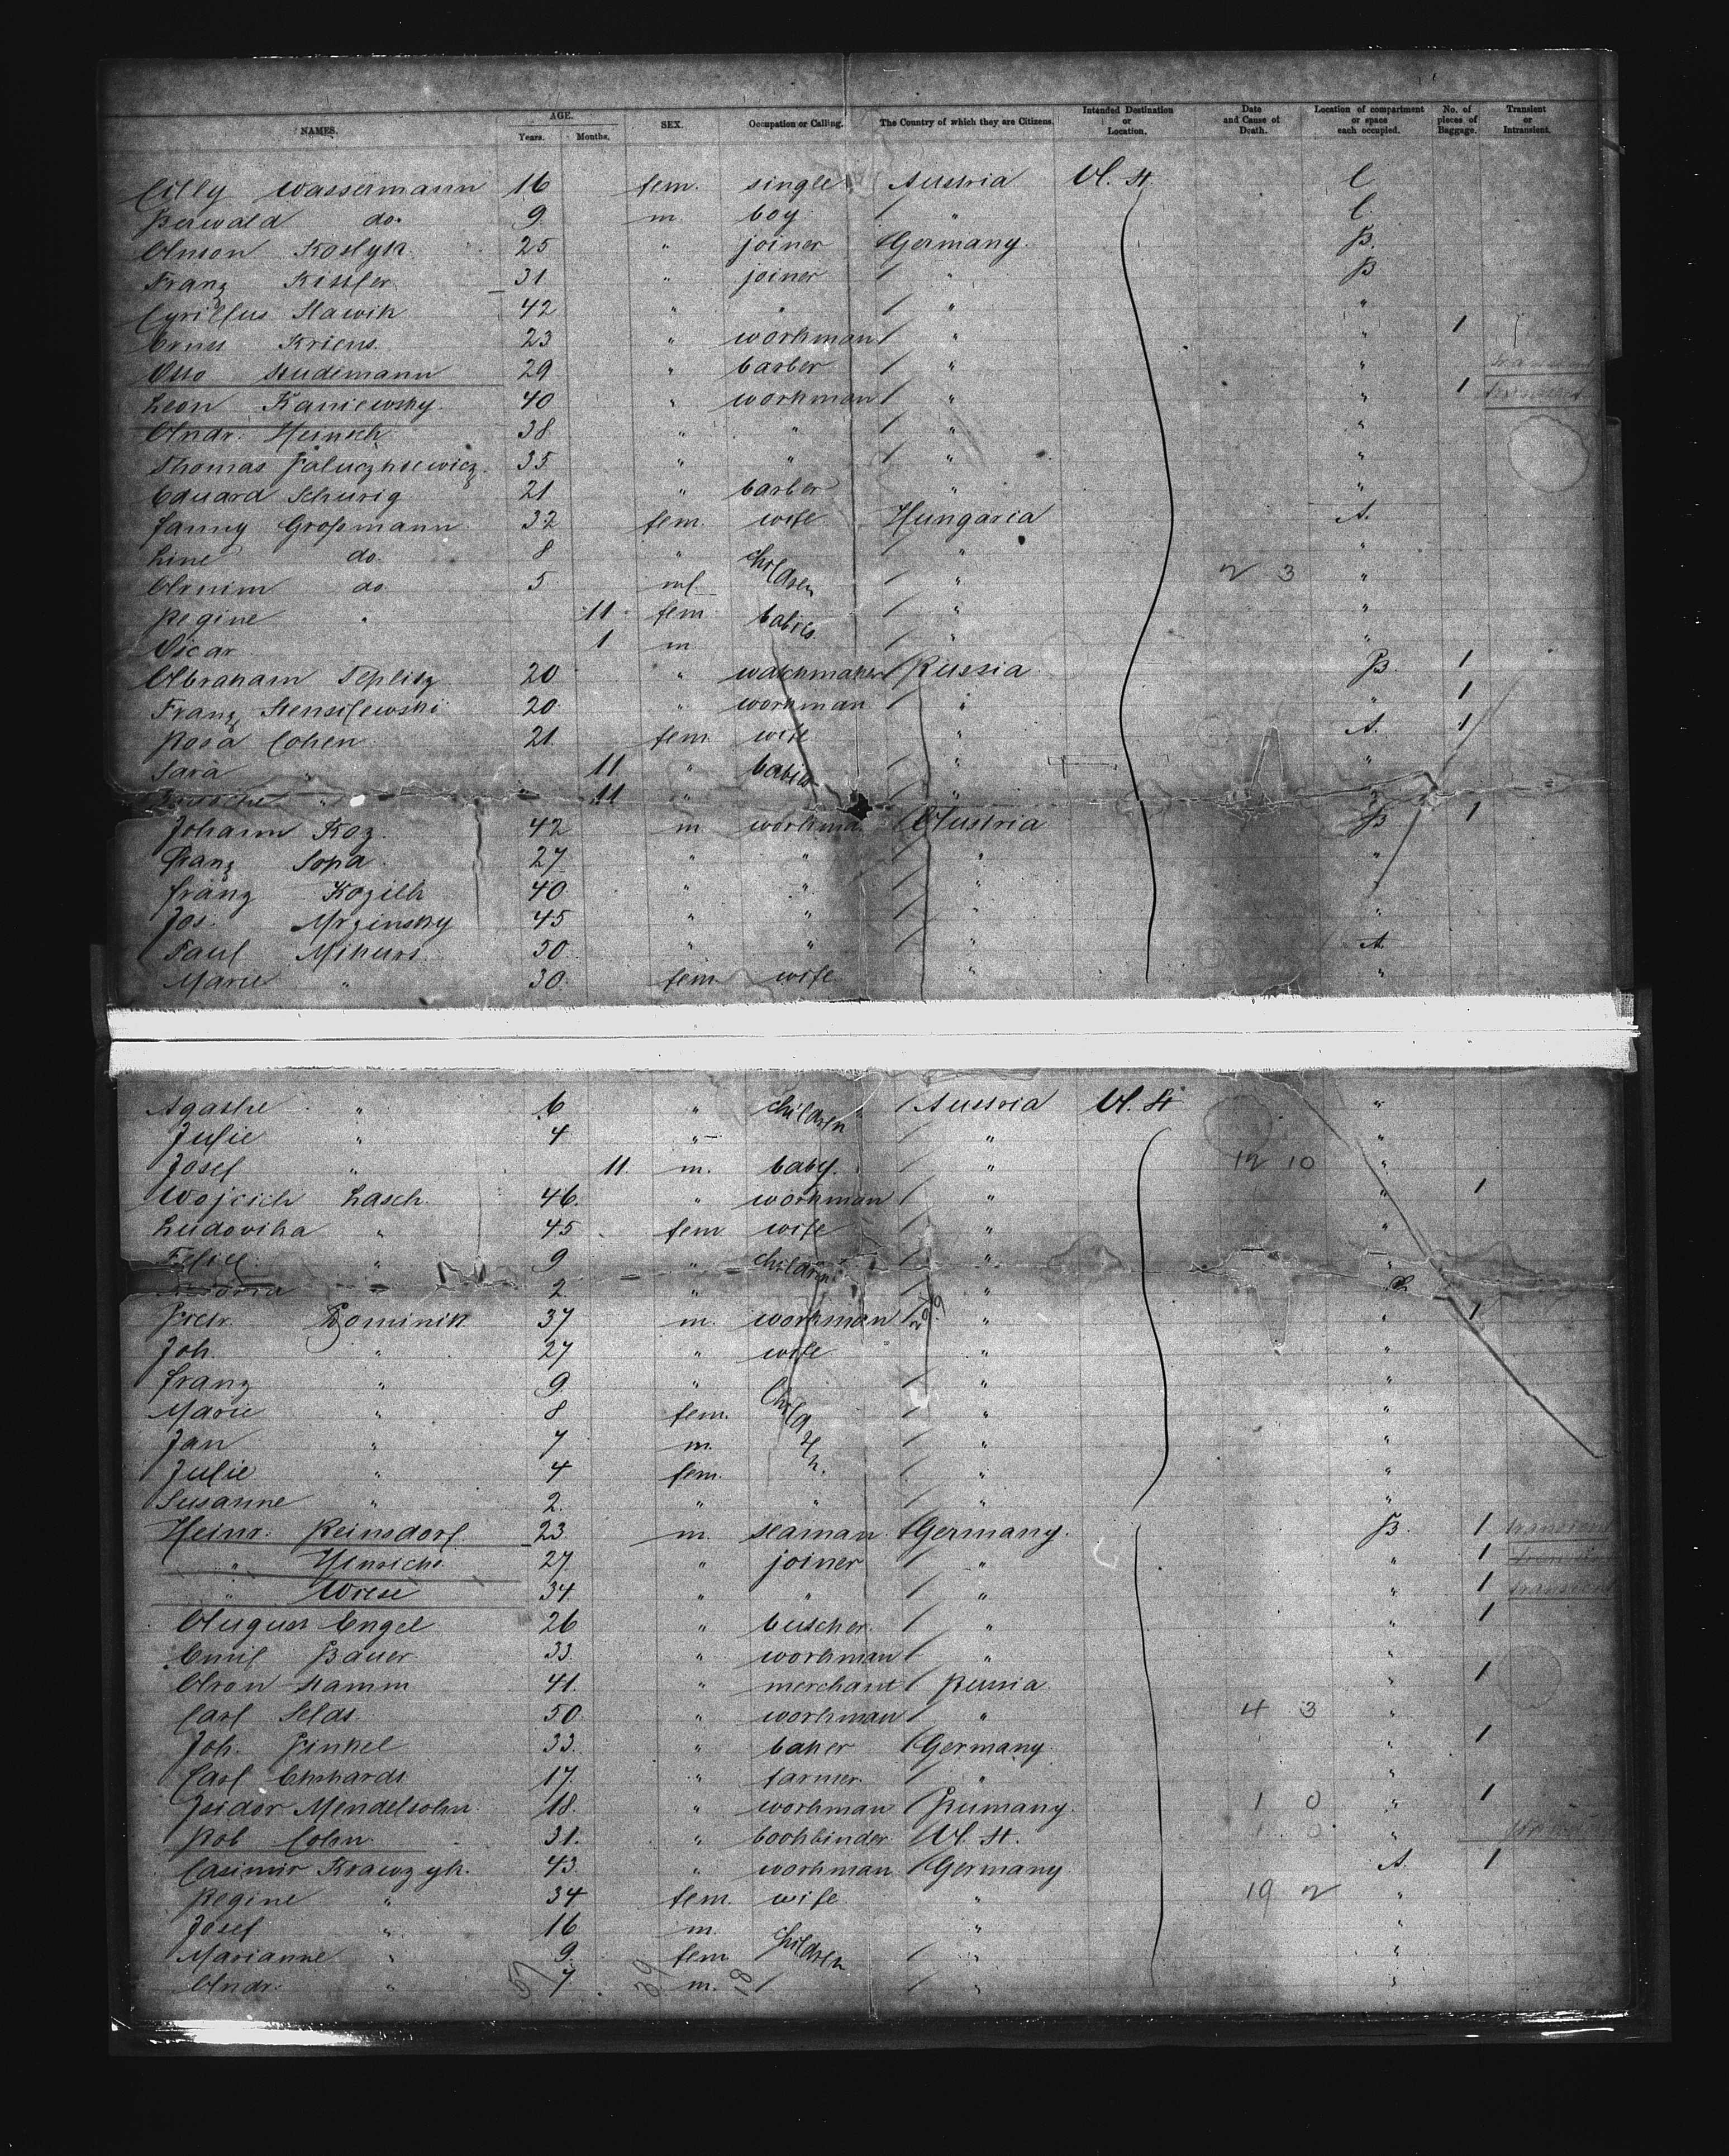 NAMES. AGE. Years. Months. SEX. Occupation or Calling. The Country of which they are Citizens. Intended Destination or Location. Date and Cause of Death. Location of compartment or space each occupied. No. of pieces of Baggage. Transient or Intransient.
Cilly Wassermann 16 fem. single Austria U. St. C
Berwald do. 9 m. boy " C.
Anton Koslyk 25 " joiner Germany B.
Franz Kissler 31 " joiner " B
Cyrillus Slawik 42 " " " "
Ernst Kriens 23 " workman " " 1
Otto Studemann 29 " barber " " transient
Leon Kaniewsky 40 " workman " " 1 transient
Andr. Heinsch 38 " " " "
Thomas 35 " " " "
Eduard Schurig 21 " barber " "
Fanny Großmann 32 fem. wife Hungaria A.
Line do. 8 " children " "
Armin do. 5 " 2 3 "
Regine " 11 fem babies " "
Oscar 1 m " "
Abraham Teplitz 20 " watchmaker Russia B 1
Franz 20 " workman " " 1
Rosa Cohen 21 fem wife " A. 1
Sara " 11 " babies " "
" 11 " "
Johann Koz 42 m workma. Austria B 1
Franz Sopa 27 " " " "
Franz 40 " " "
Jos. Mrzinsky 45 " " " "
Paul 30 " " " A
Marie " 30 fem wife " "
Agathe " 6 " children Austria U. St "
Julie " 4 " " "
Josef " 11 m. baby. " 12 10 "
Wojcich Lasch 46. " workman " " 1
Ludovika " 45 fem wife " "
" 9 " children " "
" 2 " "
Petr. Dominik 37 m. workman " " 1
Joh. " 27 " wife " "
Franz " 9 " children " "
Marie " 8 fem. " "
Jan " 7 m. " "
Julie " 4 fem. " "
Susanne " 2. " " " "
Heinr. Reinsdorf 23 m. seaman Germany. B. 1 transient
" Hinrichs 27 " joiner " " 1 transient
" Wrese 34 " " " " 1 transient
August Engel 26 " butscher. " 1
Emil Bauer 33 " workman " "
Aron Stamm 41. " merchant Russia " 1
Carl 50 " workman " 4 3 "
Joh. Finkel 33. " baker Germany " 1
Carl Ehrhardt 17. " farmer. " "
Isidor Mendelsohn 18. " workman Rumany. 1 0 " 1
Rob Cohn 31. " bookbinder U. St. "
Casimir Krawzyk. 43. " workman Germany A. 1
Regine " 34 fem. wife " 19 2 "
Josef " 16 m. children " "
Marianne " 9. fem " "
Andr. " 7 m. " "